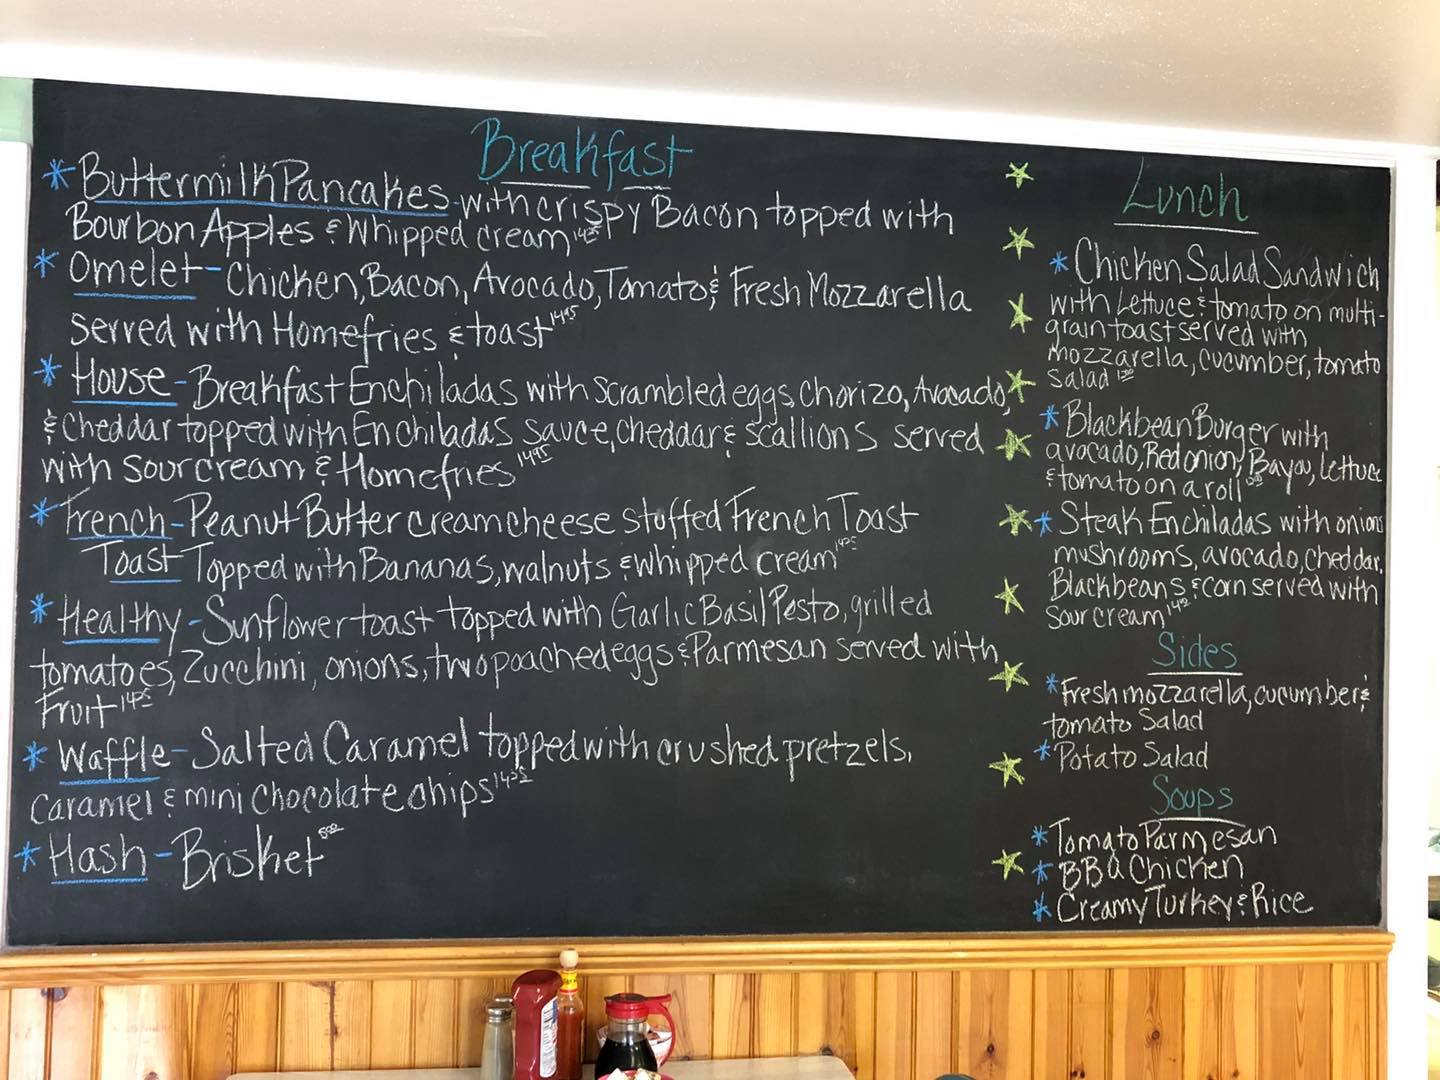 Breakfast
* Buttermilk Pancakes - with crispy Bacon topped with
Bourbon Apples & Whipped cream
* Omelet - Chicken, Bacon, Avocado, Tomato, & Fresh Mozzarella
served with Homefries & toast 14.95
* House - Breakfast Enchiladas with scrambled eggs, Chorizo, Avocado,
& Cheddar topped with Enchiladas sauce, cheddar & scallions served
with sour cream & Homefries 14.95
* French - Peanut Butter cream cheese stuffed French Toast
Toast Topped with Bananas, walnuts & whipped cream
* Healthy - Sunflower toast topped with Garlic Basil Pesto, grilled
tomatoes, Zucchini, onions, two poached eggs & Parmesan served with
Fruit
* Waffle - Salted Caramel topped with crushed pretzels,
Caramel & mini chocolate chips
* Hash - Brisket
Lunch
* Chicken Salad Sandwich
with Lettuce & tomato on multi-
grain toast served with
mozzarella, cucumber, tomato
salad
* Blackbean Burger with
avocado, Red onion, Bayou, Lettuce
& tomato on a roll
* Steak Enchiladas with onions
mushrooms, avocado, cheddar,
Blackbeans & corn served with
Sour cream
Sides
* Fresh mozzarella, cucumber &
tomato Salad
* Potato Salad
Soups
* Tomato Parmesan
* BBQ Chicken
* Creamy Turkey & Rice